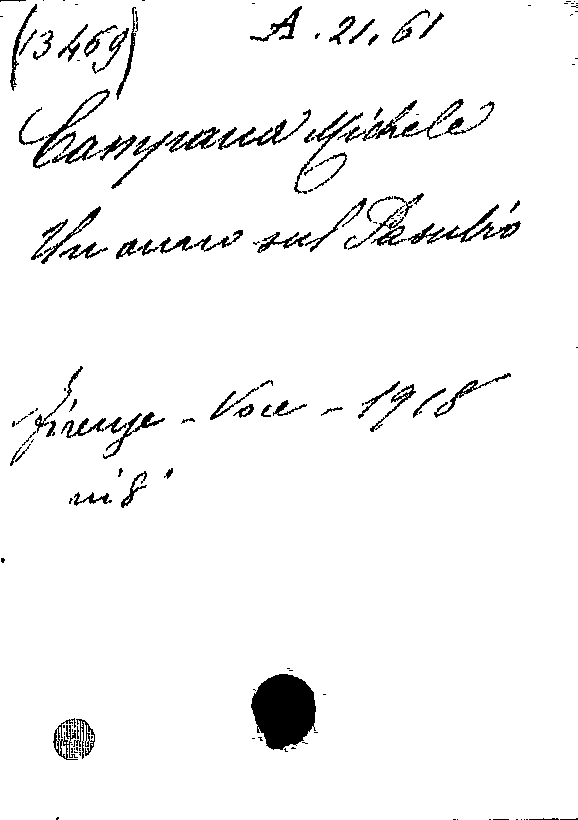 (13469) A. 21. 61
Campana Michele
Un anno sul Pasubio
Firenze - Voce - 1918
in 8°